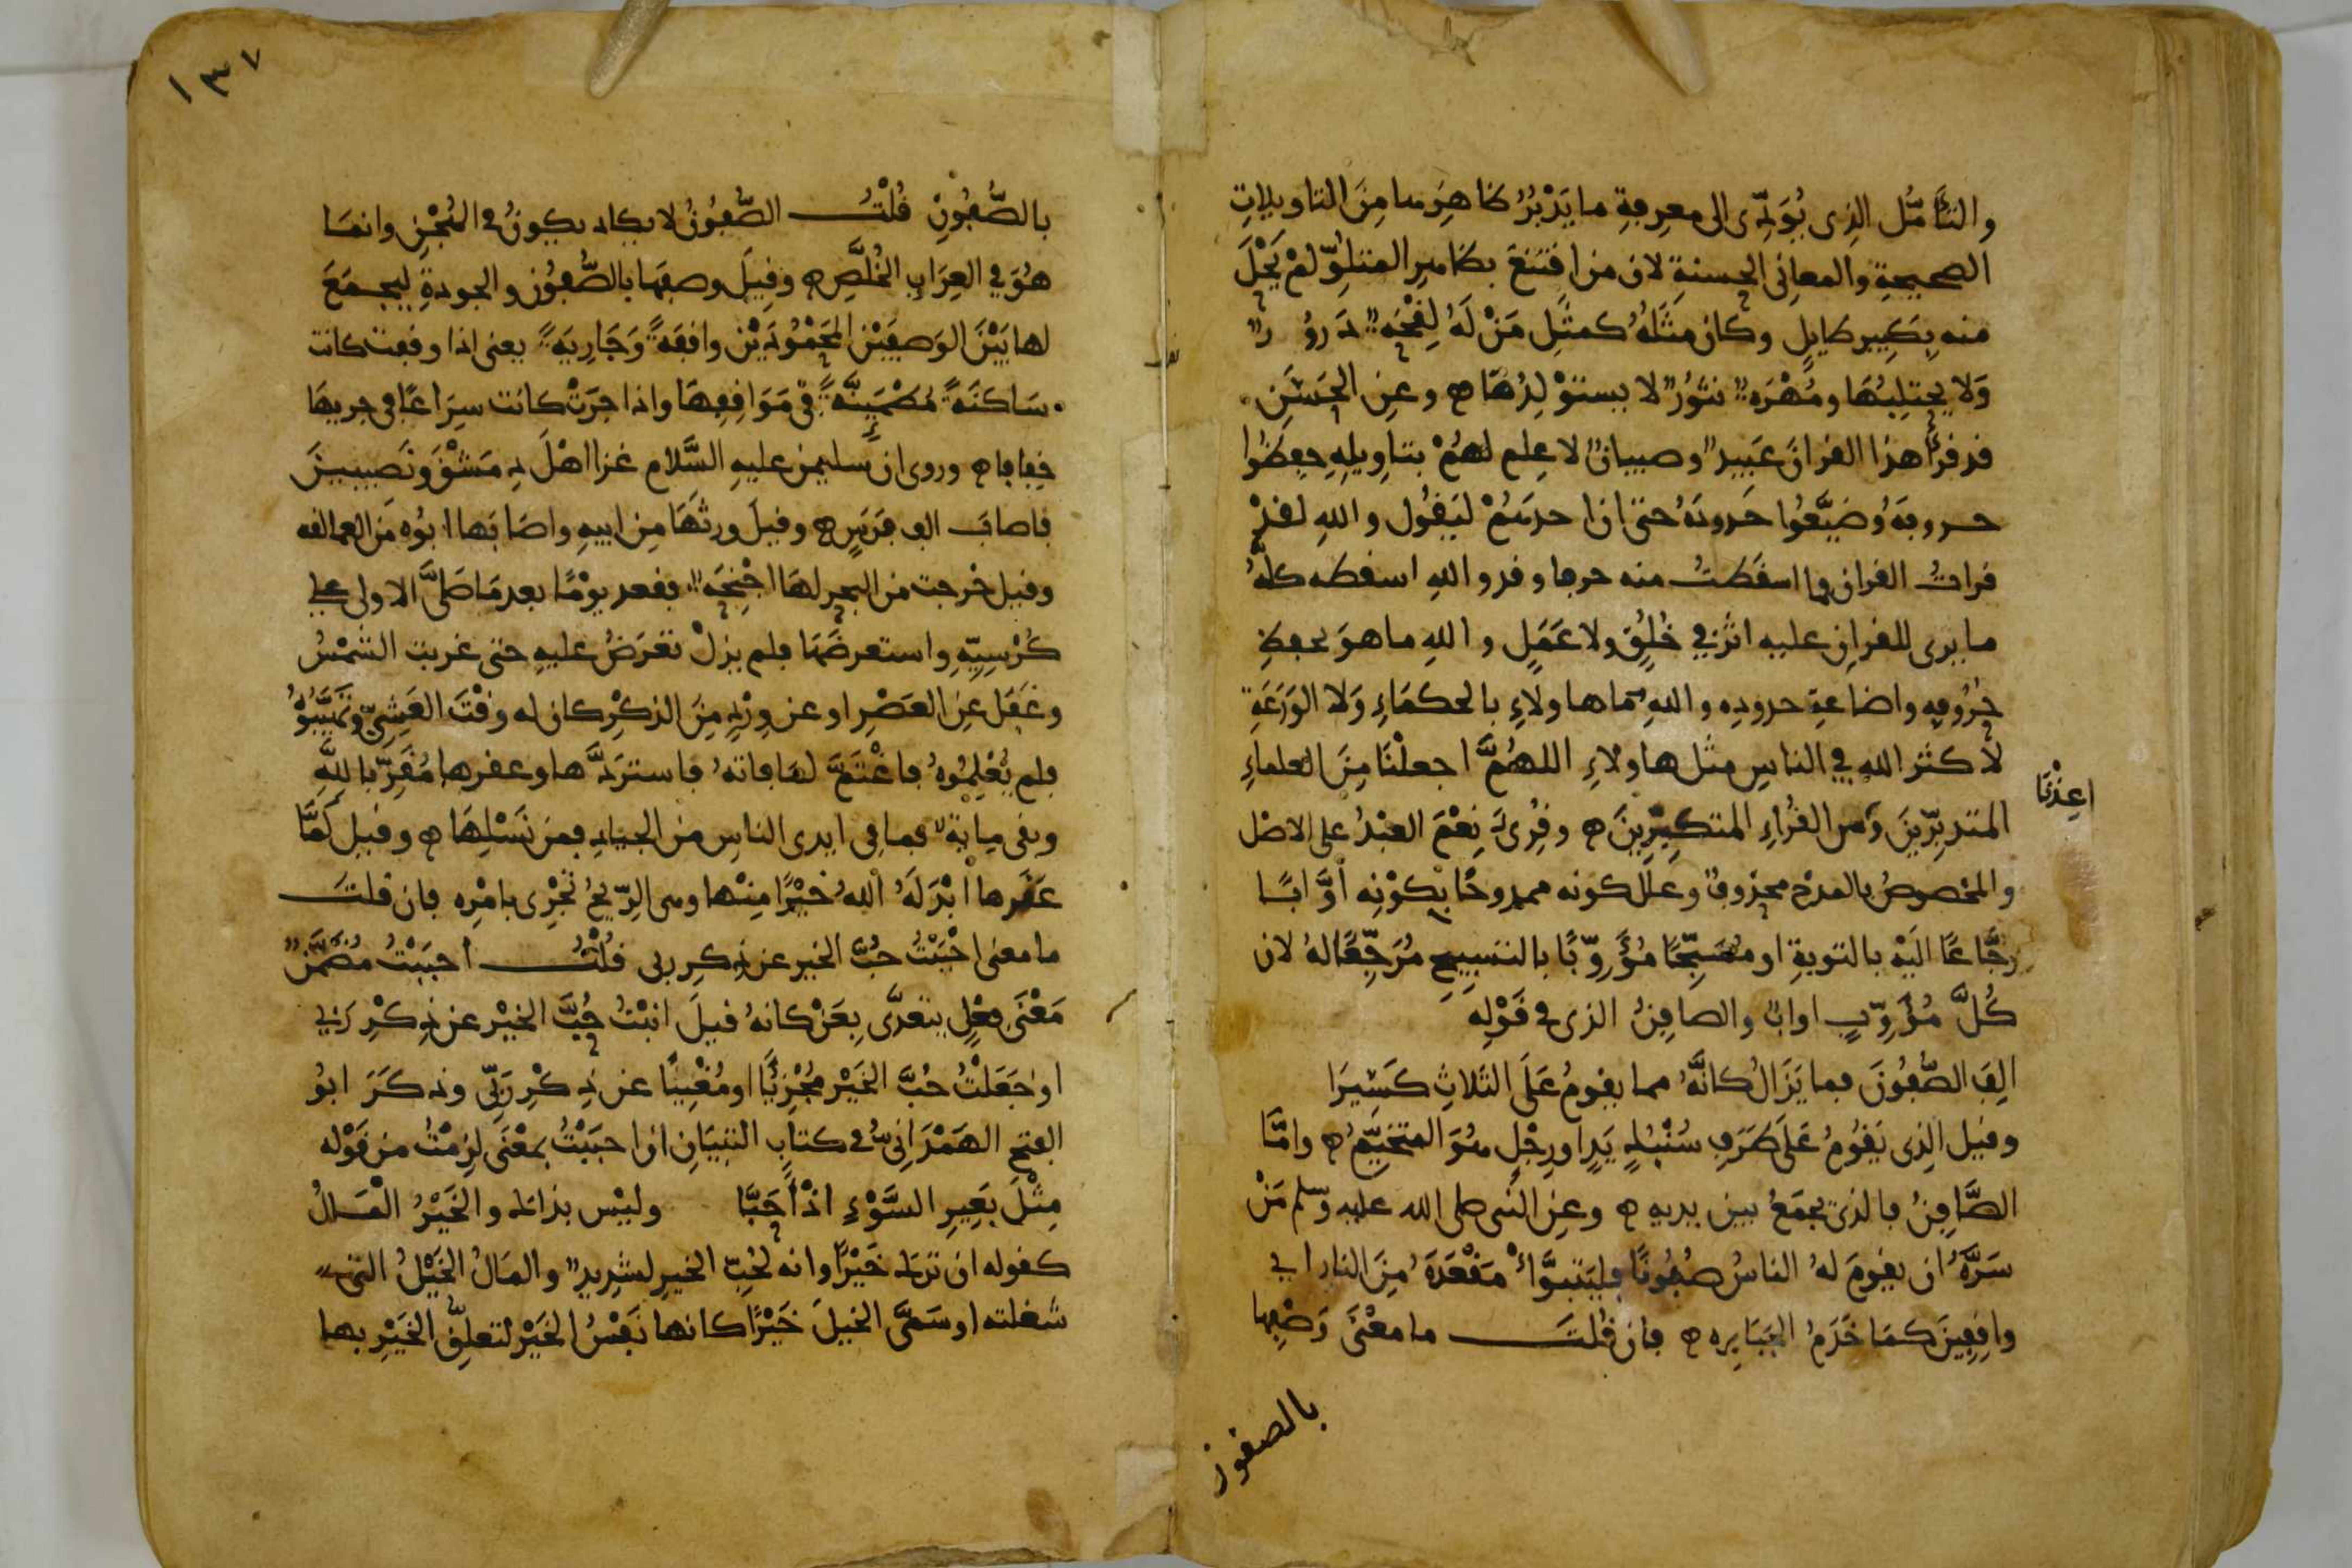 والتأمّل الذى يُؤَدّى الى معرفةِ ما يَدْبُرُ ظاهِرَها مِنَ التاويلاتِ
الصحيحةِ والمعانِى الحسنةِ لان من اقتَنعَ بظاهِرِ المتلوِّ لَمْ يَحْلَ
منه بِكبير طايِلٍ وكانَ مَثَلُهُ كمثَلِ مَنْ لَهُ لِقْحَةٌ دَرورٌ
وَلا يحتلِبُها ومُهْرَةٌ نثورٌ لا يستوْلِدُها ه وعنِ الحَسَنِ
قد قرأ هذا القرانَ عَبيدٌ وصبيانٌ لا عِلم لهُمْ بتاويلِهِ حفِظُوا
حروفَهُ وضَيَّعُوا حُدودَهُ حتى ان احدهُمْ ليَقُول واللهِ لقدْ
قراتُ القران فما اسقَطتُ منه حرفا وقد واللهِ اسقطه كلَّهُ
ما يرى للقرانِ عليه اثرٌ فى خُلُقٍ ولا عَمَلٍ واللهِ ما هوَ بحفظِ
حُرُوفِهِ واضاعةِ حدودِه واللهِ ما هاولاءِ بالحكمَاءِ وَلا الوَزَعَةِ
لا كثّر الله فى الناسِ مثل هاولاءِ اللهُمَّ اجعلْنَا مِنَ العلماءِ
المتدبّرينَ وَ من القُرّاءِ المتكبِّرِينَ ه وقُرِىَ نِعْمَ العَبْدُ على الاصْل
اعِذْنَا
والمخصوصُ بالمدح محذوفٌ وعلّل كونه ممدوحًا بكوْنِه أوَّابًا
رجَّاعًا الَيْهِ بالتوبةِ او مُسَبِّحًا مُؤَوِّبًا بالتسبِيحِ مُرَجِّعًا لهُ لان
كُلَّ مُؤَوِّبٍ اوابٌ والصافِنُ الذى فى قَوْلِهِ
الِفَ الصُّفُونَ فما يَزَالُ كانَّهُ مما يقومُ عَلَى الثَلاثِ كَسِيرَا
وقيل الذى يَقُومُ عَلَى طَرَفِ سُنْبُكِ يَدٍ او رِجْلٍ هُوَ المتخَيِّمُ ه وامَّا
الصَّافِنُ فالذى يجمَعُ بين يديه ه وعنِ النَّبى صلى الله عليه وسلم مَنْ
سَرَّهُ ان يقومَ لهُ الناسُ صُفُونًا فليَتبوَّأْ مَقْعَدَهُ مِنَ النار اى
واقِفِينَ كمَا خَدَمُ الجَبَابِره ه فان قُلتَ ما معْنَى وَصْفِها
بالصفون
١٣٧
بالصُّفُونِ قُلْتُ الصُّفُونُ لا يكاد يكونُ فى الهُجْنِ وانمَا
هُوَ فى العِرَابِ الخُلَّصِ ه وقِيلَ وصفَها بالصُّفُونِ والجودةِ ليجمَعَ
لها بَيْنَ الوَصفَيْنِ المَحْمُودَيْنِ واقفَةً وَجَارِيَةً يعنى اذا وقفت كانت
سَاكنَةً مُطْمَئِنَّةً فى مَوَاقِفِهَا واذا جرَتْ كانت سِرَاعًا فى جريهَا
خِفافا ه وروى ان سليمن عليهِ السَّلام غزا اهْلَ دِمَشْقَ وَنَصِيبينَ
فاصابَ الف فَرَسٍ ه وقيلَ ورثَهَا مِن ابيهِ واصَابَها ابُوه مِن العمالقه
وقيل خرجت من البحر لهَا اجْنِحَةٌ فقعد يوْمًا بعد مَا صَلَّى الاولى على
كُرْسِيِّهِ واستعرضَهَا فلم يزلْ تعرَضُ عليهِ حتى غربت الشَّمْسُ
وغَفَلَ عنِ العَصْرِ او عن وِرْدٍ مِنَ الذكْرِ كان له وقْتَ العَشِىِّ وتَهَيَّبُوهُ
فلم يُعْلِمُوهُ فاغْتَمَّ لمَا فاتهُ فاسترَدَّها وعقرها مُقَرِّبا للهِ
وبقى ميايةٌ فما فى ايدى الناسِ من الجيادِ فمن نَسْلِهَا ه وقيل لَمَّا
عَقَرها ابْدَلَهُ اللهُ خَيْرًا مِنْها وهى الرِّيحُ تجْرِى بامْرِه فان قلتَ
ما معنى احْبَبْتُ حُبَّ الخير عن ذِكرِ ربى قُلْتُ احبَبْتُ مُضَمَّنٌ
مَعْنَى فِعْلٍ يتعدَّى بِعَنْ كانهُ قيلَ انَبْتُ حُبَّ الخيْر عن ذِكْرِ رَبى
او جَعَلْتُ حُبَّ الخَيْرِ مُجْزِيًا او مُغْنِيًا عن ذِكْرِ رَبِّى وذكَرَ ابُو
الفتحِ الهَمْدَانِىُّ فى كتابِ التبيَانِ ان احبَبْتُ بمعْنَى لزِمْتُ من قَوْلِه
مِثْلُ بَعِيرِ السَّوْءِ اذْ أَحَبَّا وليْس بذاك والخَيْرُ الْمَالُ
كقوله ان ترك خَيْرًا وانه لحُبِّ الخيرِ لشدِيدٌ والمَالُ الخَيْلُ التى
شغلته او سَمَّى الخيلَ خَيْرًا كانها نَفْسُ الخَيْرِ لتعلقِ الخَيْرِ بها